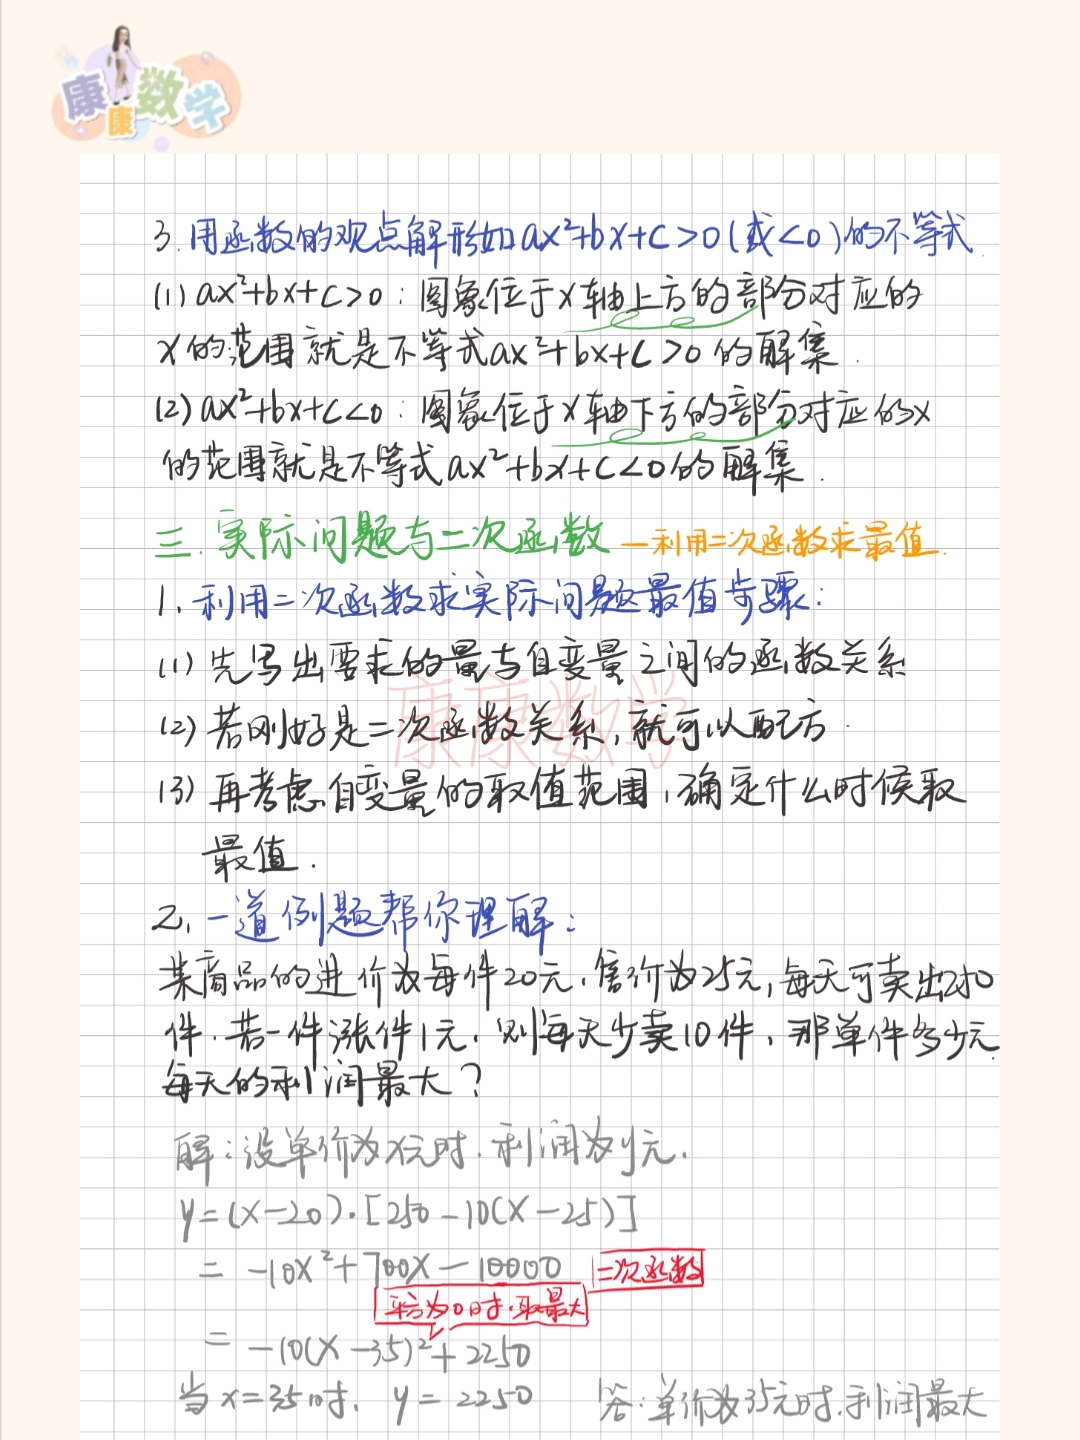 康康数学
3.用函数的观点解形如ax²+bx+c>0(或<0)的不等式.
(1)ax²+bx+c>0:图象位于x轴上方的部分对应的
x的范围就是不等式ax²+bx+c>0的解集.
(2)ax²+bx+c<0:图象位于x轴下方的部分对应的x
的范围就是不等式ax²+bx+c<0的解集.
三.实际问题与二次函数—利用二次函数求最值.
1.利用二次函数求实际问题最值步骤:
(1)先写出要求的量与自变量之间的函数关系
(2)若刚好是二次函数关系,就可以配方.
(3)再考虑自变量的取值范围,确定什么时候取
最值.
康康数学
2.一道例题帮你理解:
某商品的进价为每件20元,售价为25元,每天可卖出250
件.若一件涨件1元,则每天少卖10件,那单件多少元
每天的利润最大?
解:设单价为x元时,利润为y元.
y=(x-20)·[250-10(x-25)]
=-10x²+700x-10000 二次函数
平方为0时,取最大
=-10(x-35)²+2250
当x=35时,y=2250 答:单价为35元时,利润最大